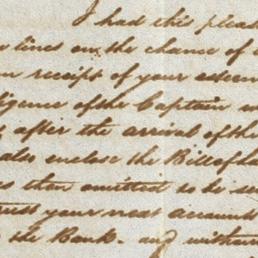 I had this pleas
lines on the chance of
receipt of your esteem
ligence of the Captain
after the arrival of the
also enclose the Bill of la
than omitted to be se
your next accounts
the Bank - and withou